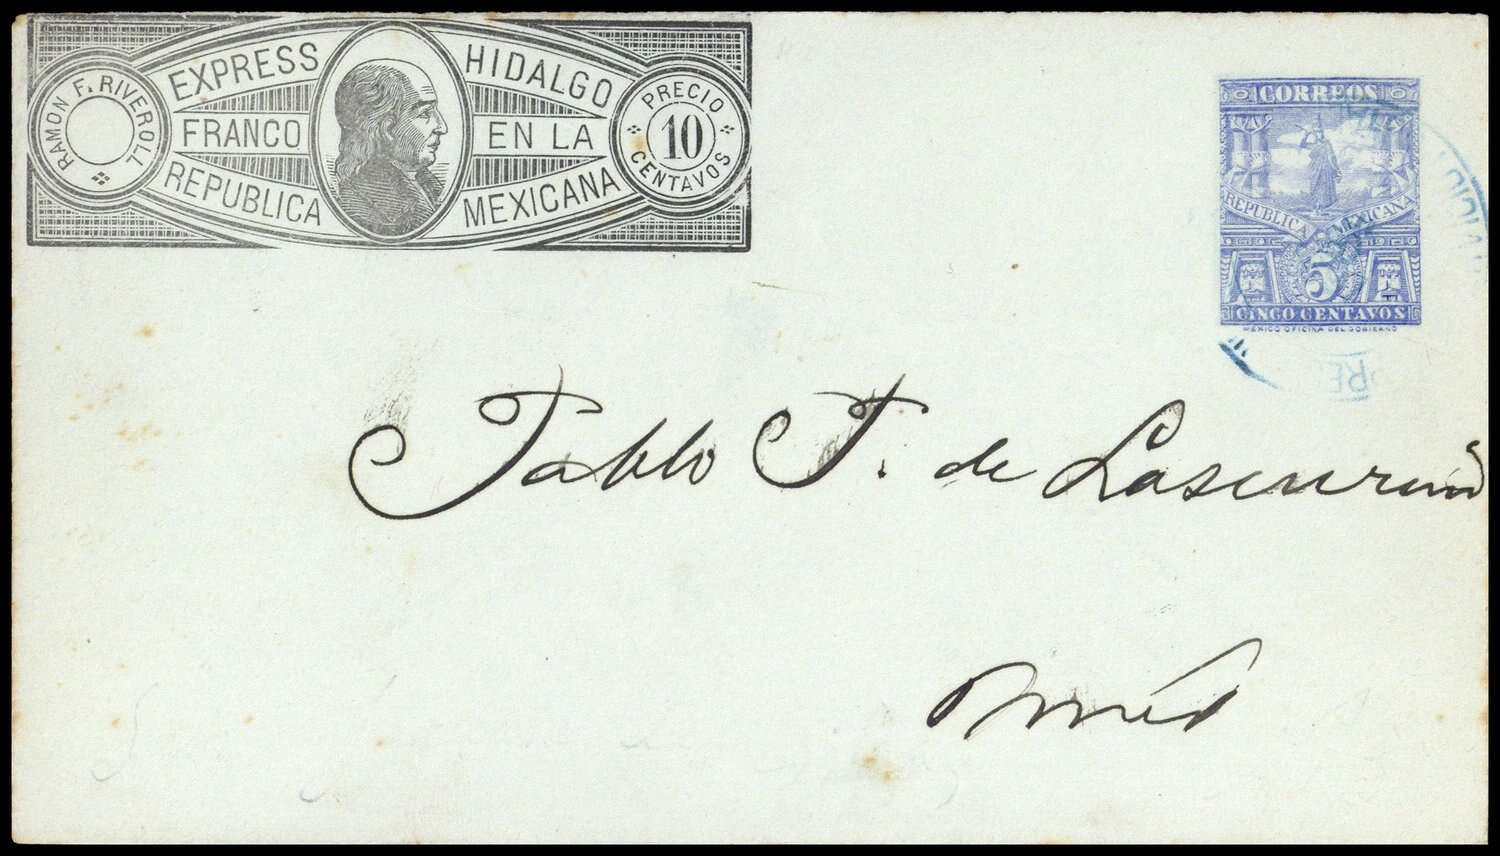 RAMON F. RIVEROLL
EXPRESS HIDALGO
FRANCO EN LA
REPUBLICA MEXICANA
PRECIO
10
CENTAVOS
CORREOS
REPUBLICA MEXICANA
5
CINCO CENTAVOS
MEXICO OFICINA DEL GOBIERNO
Pablo F. de Lascurain